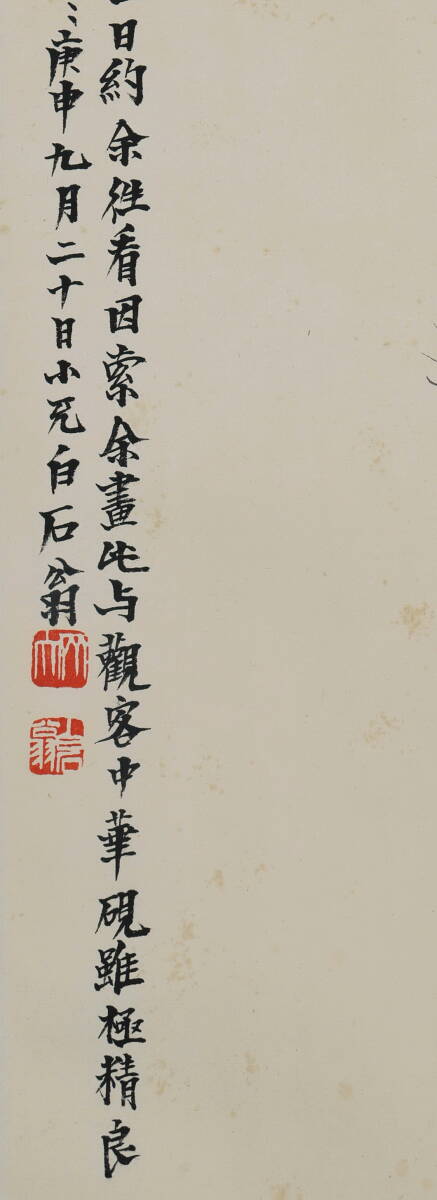 日約余往看因索余畫此与觀客中華硯雖極精良
庚申九月二十日小兄白石翁
木人